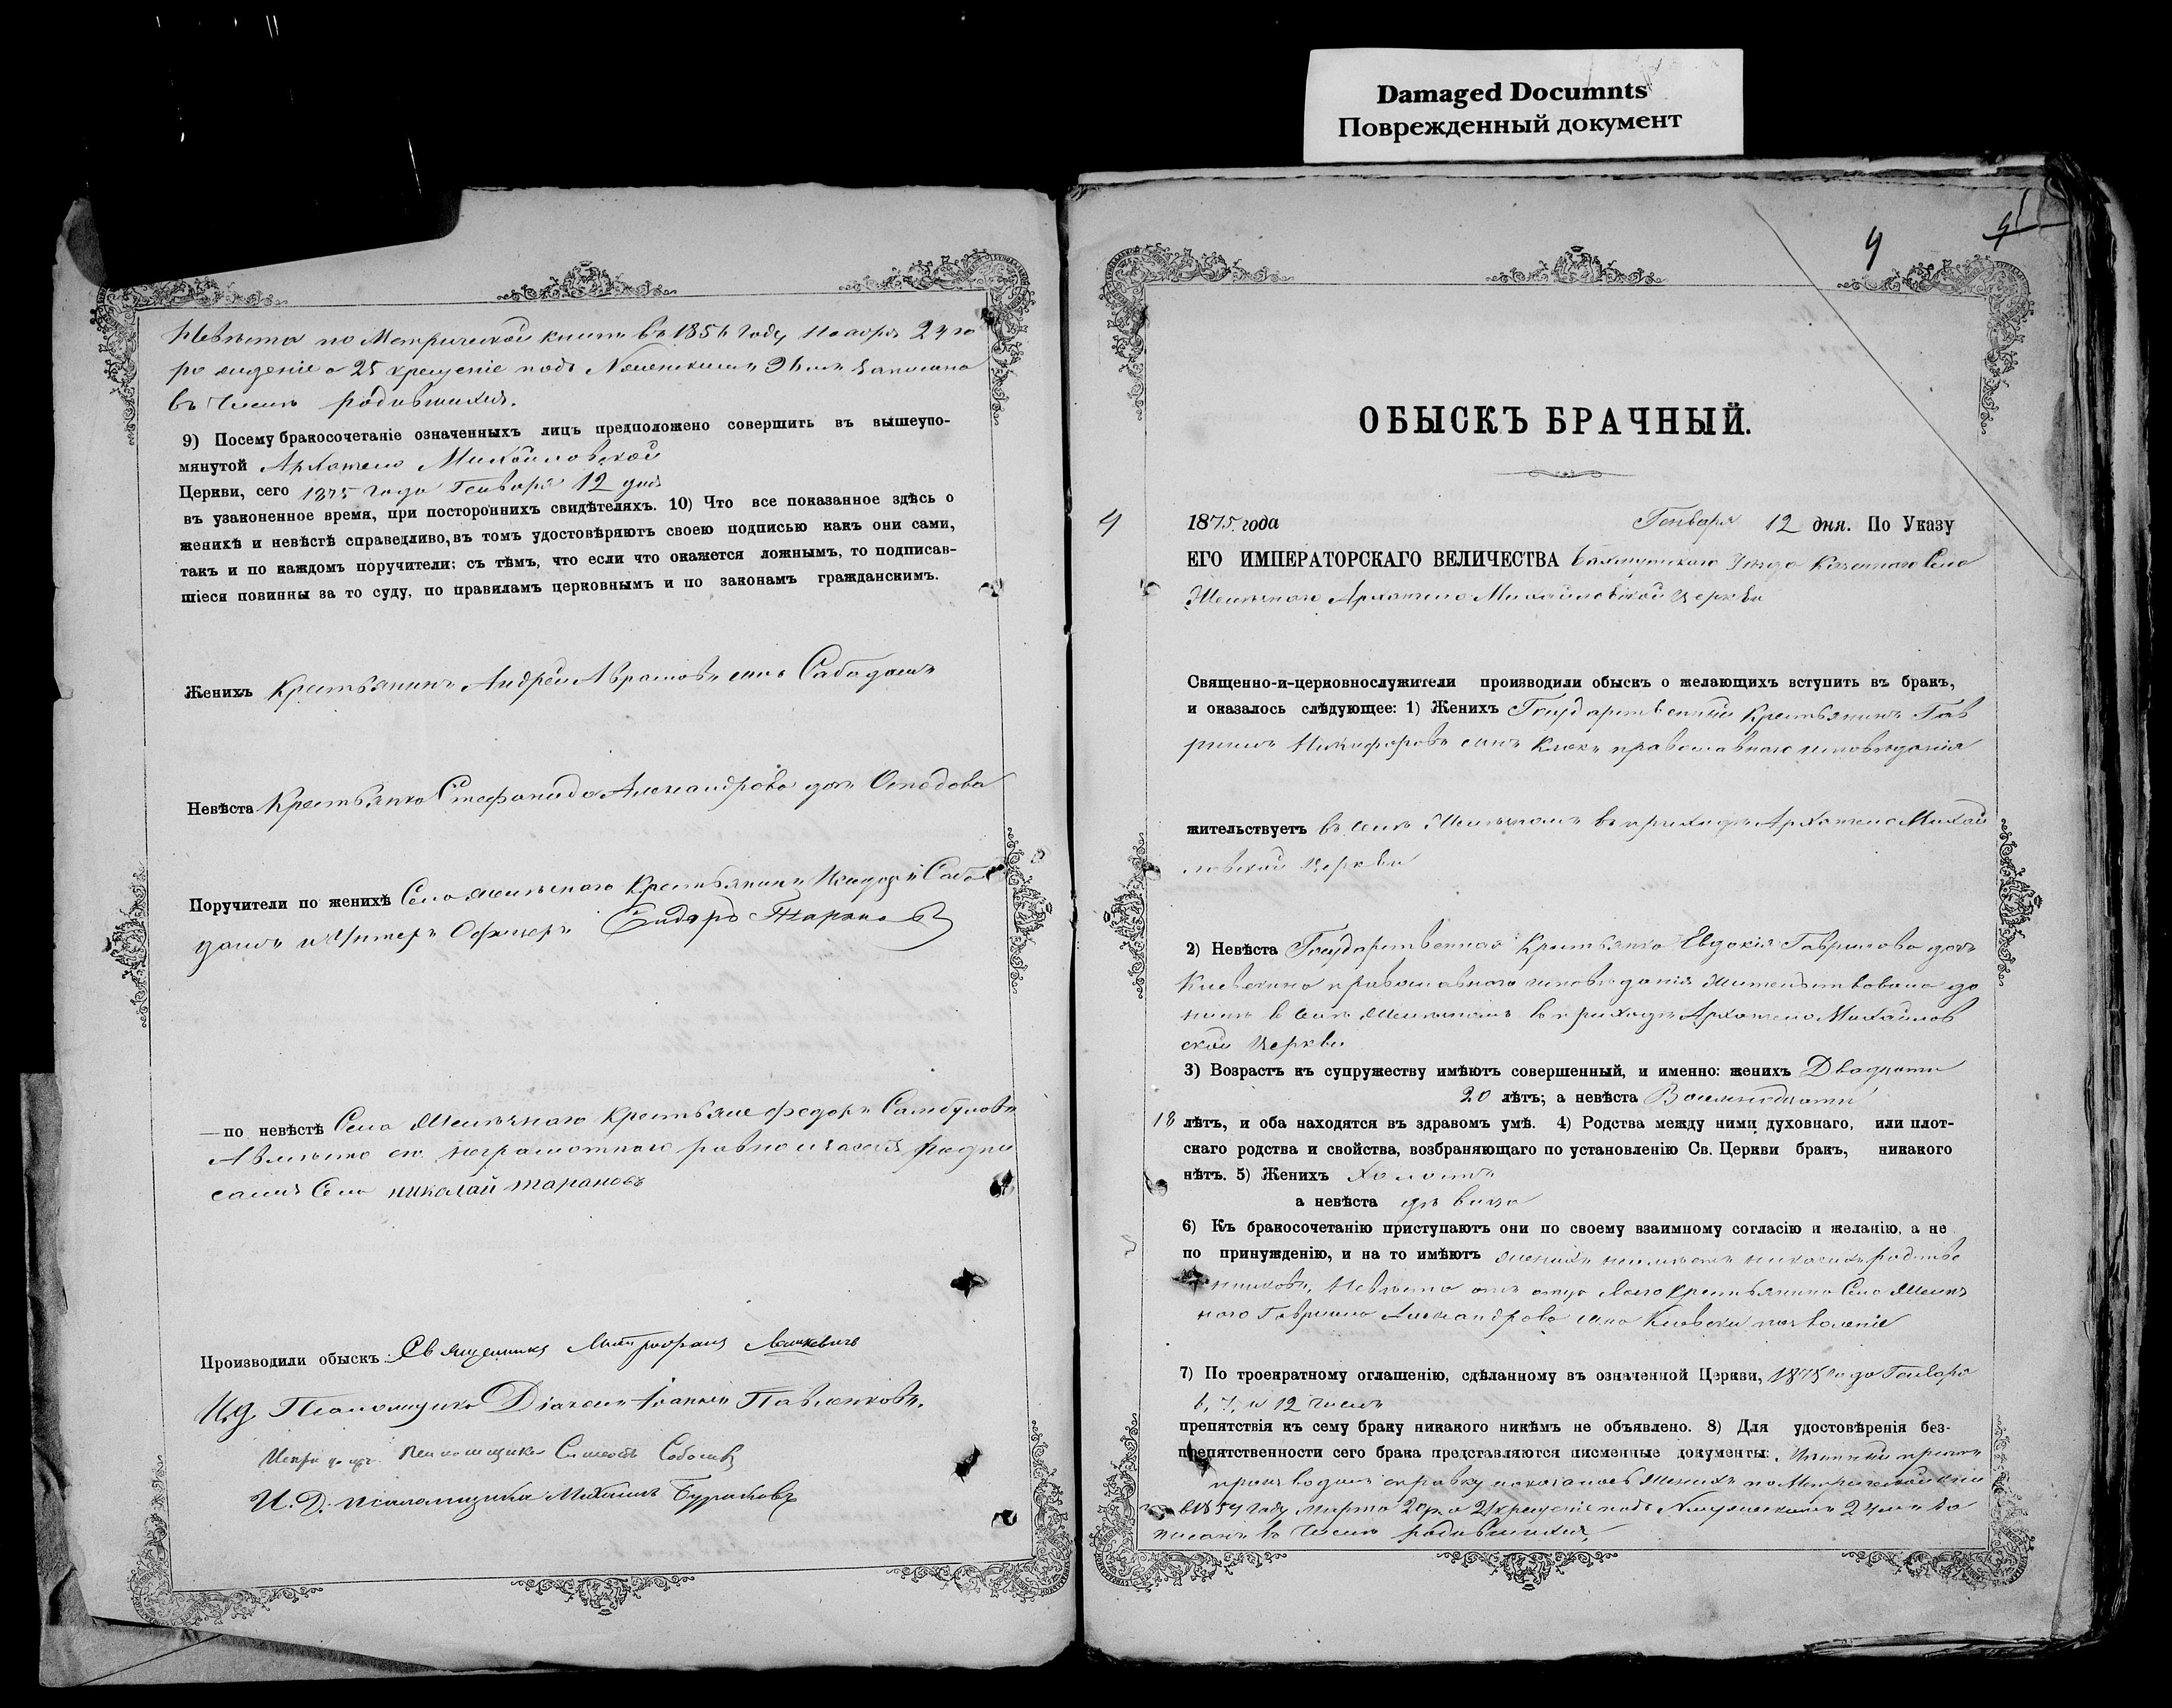 Damaged Documnts
Поврежденный документ
Невѣста по Метрической книгѣ въ 1856 году Ноября 24го
рождение а 25 крещеніе подъ № женскимъ 36мъ записана
въ числѣ родившихся.
9) Посему бракосочетаніе означенныхъ лицъ предположено совершить въ вышеупо-
мянутой Архангело Михайловской
Церкви, сего 1875 года Генваря 12 дня
въ узаконенное время, при постороннихъ свидѣтеляхъ. 10) Что все показанное здѣсь о
женихѣ и невѣстѣ справедливо, въ томъ удостовѣряютъ своею подписью какъ они сами,
такъ и по каждомъ поручители; съ тѣмъ, что если что окажется ложнымъ, то подписав-
шіеся повинны за то суду, по правиламъ церковнымъ и по законамъ гражданскимъ.
Женихъ Крестьянинъ Андрей Аврамовъ сынъ Сабадашъ
Невѣста Крестьянка Стефанида Александрова дочь
Поручители по женихѣ Села Желѣзного Крестьянинъ Саба
дашъ и Унтеръ Офицеръ Таранов
— по невѣстѣ Села Желѣзного Крестьяне Федоръ
неграмотного
николай тарановъ
Производили обыскъ: Священникъ Митрофанъ
И.д. Псаломщика Діаконъ Іоаннъ Павленковъ.
Псаломщика Соболевъ
И. Д. псаломщика Михаилъ Бураковъ
4
4
1
ОБЫСКЪ БРАЧНЫЙ.
4
1875 года Генваря 12 дня. По Указу
ЕГО ИМПЕРАТОРСКАГО ВЕЛИЧЕСТВА Бахмутского Уѣзда Казенного Села
Желѣзного Архангело Михайловской церкви
Священно-и-церковнослужители производили обыскъ о желающихъ вступить въ бракъ,
и оказалось слѣдующее: 1) Женихъ Государственный Крестьянинъ Гав
риилъ Никифоровъ сынъ православного исповѣданія
жительствуетъ въ селѣ Желѣзномъ въ приходѣ Архангело Михай
ловской церкви
2) Невѣста Государственная Крестьянка Евдокія Гаврилова дочь
Кіевскина православного исповѣданія жительствовала до
нынѣ в селѣ Желѣзномъ въ приходѣ Архангело Михайлов
ской церкви
3) Возрастъ къ супружеству имѣютъ совершенный, и именно: женихъ Двадцати
20 лѣтъ; а невѣста Восемнадцати
18 лѣтъ, и оба находятся въ здравомъ умѣ. 4) Родства между ними духовнаго, или плот-
скаго родства и свойства, возбраняющаго по установленію Св. Церкви бракъ, никакого
нѣтъ. 5) Женихъ Холостъ
а невѣста дѣвица
6) Къ бракосочетанію приступаютъ они по своему взаимному согласію и желанію, а не
по принужденію, и на то имѣютъ женихъ неимѣетъ никакихъ родстве
нниковъ, Невѣста отъ отца своего Крестьянина Села Желѣз
ного Гавриила Александрова сына позволеніе
7) По троекратному оглашенію, сдѣланному въ означенной Церкви, 1875 года Генваря
6, 7, и 12 числъ
препятствія къ сему браку никакого никѣмъ не объявлено. 8) Для удостовѣренія без-
препятственности сего брака представляются писменные документы:
справку женихъ по Метрической кни
въ 1854 году Марта 20 р. а 21 крещеніе подъ № мужескимъ 24мъ за
писанъ въ числѣ родившихся